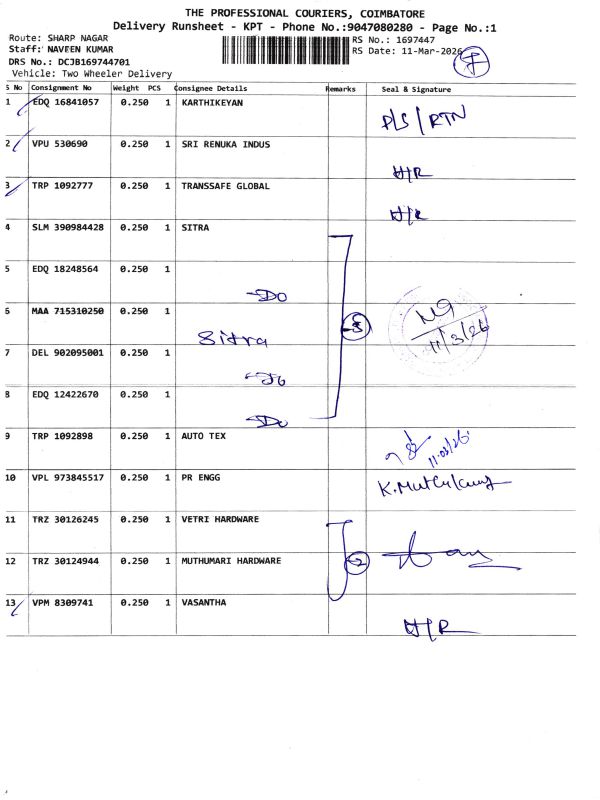 THE PROFESSIONAL COURIERS, COIMBATORE
Delivery Runsheet - KPT - Phone No.:9047080280 - Page No.:1
Route: SHARP NAGAR
RS No.: 1697447
Staff: NAVEEN KUMAR
RS Date: 11-Mar-2026
DRS No.: DCJB169744701
Vehicle: Two Wheeler Delivery
S No Consignment No Weight PCS Consignee Details Remarks Seal & Signature
1 EDQ 16841057 0.250 1 KARTHIKEYAN
D/S / RTN
2 VPU 530690 0.250 1 SRI RENUKA INDUS
H/R
3 TRP 1092777 0.250 1 TRANSSAFE GLOBAL
H/R
4 SLM 390984428 0.250 1 SITRA
5 EDQ 18248564 0.250 1
-Do
6 MAA 715310250 0.250 1
Sitra
5
11/3/26
7 DEL 902095001 0.250 1
-Do
8 EDQ 12422670 0.250 1
-Do
9 TRP 1092898 0.250 1 AUTO TEX
11.03/26
10 VPL 973845517 0.250 1 PR ENGG
11 TRZ 30126245 0.250 1 VETRI HARDWARE
12 TRZ 30124944 0.250 1 MUTHUMARI HARDWARE
2
13 VPM 8309741 0.250 1 VASANTHA
H/R